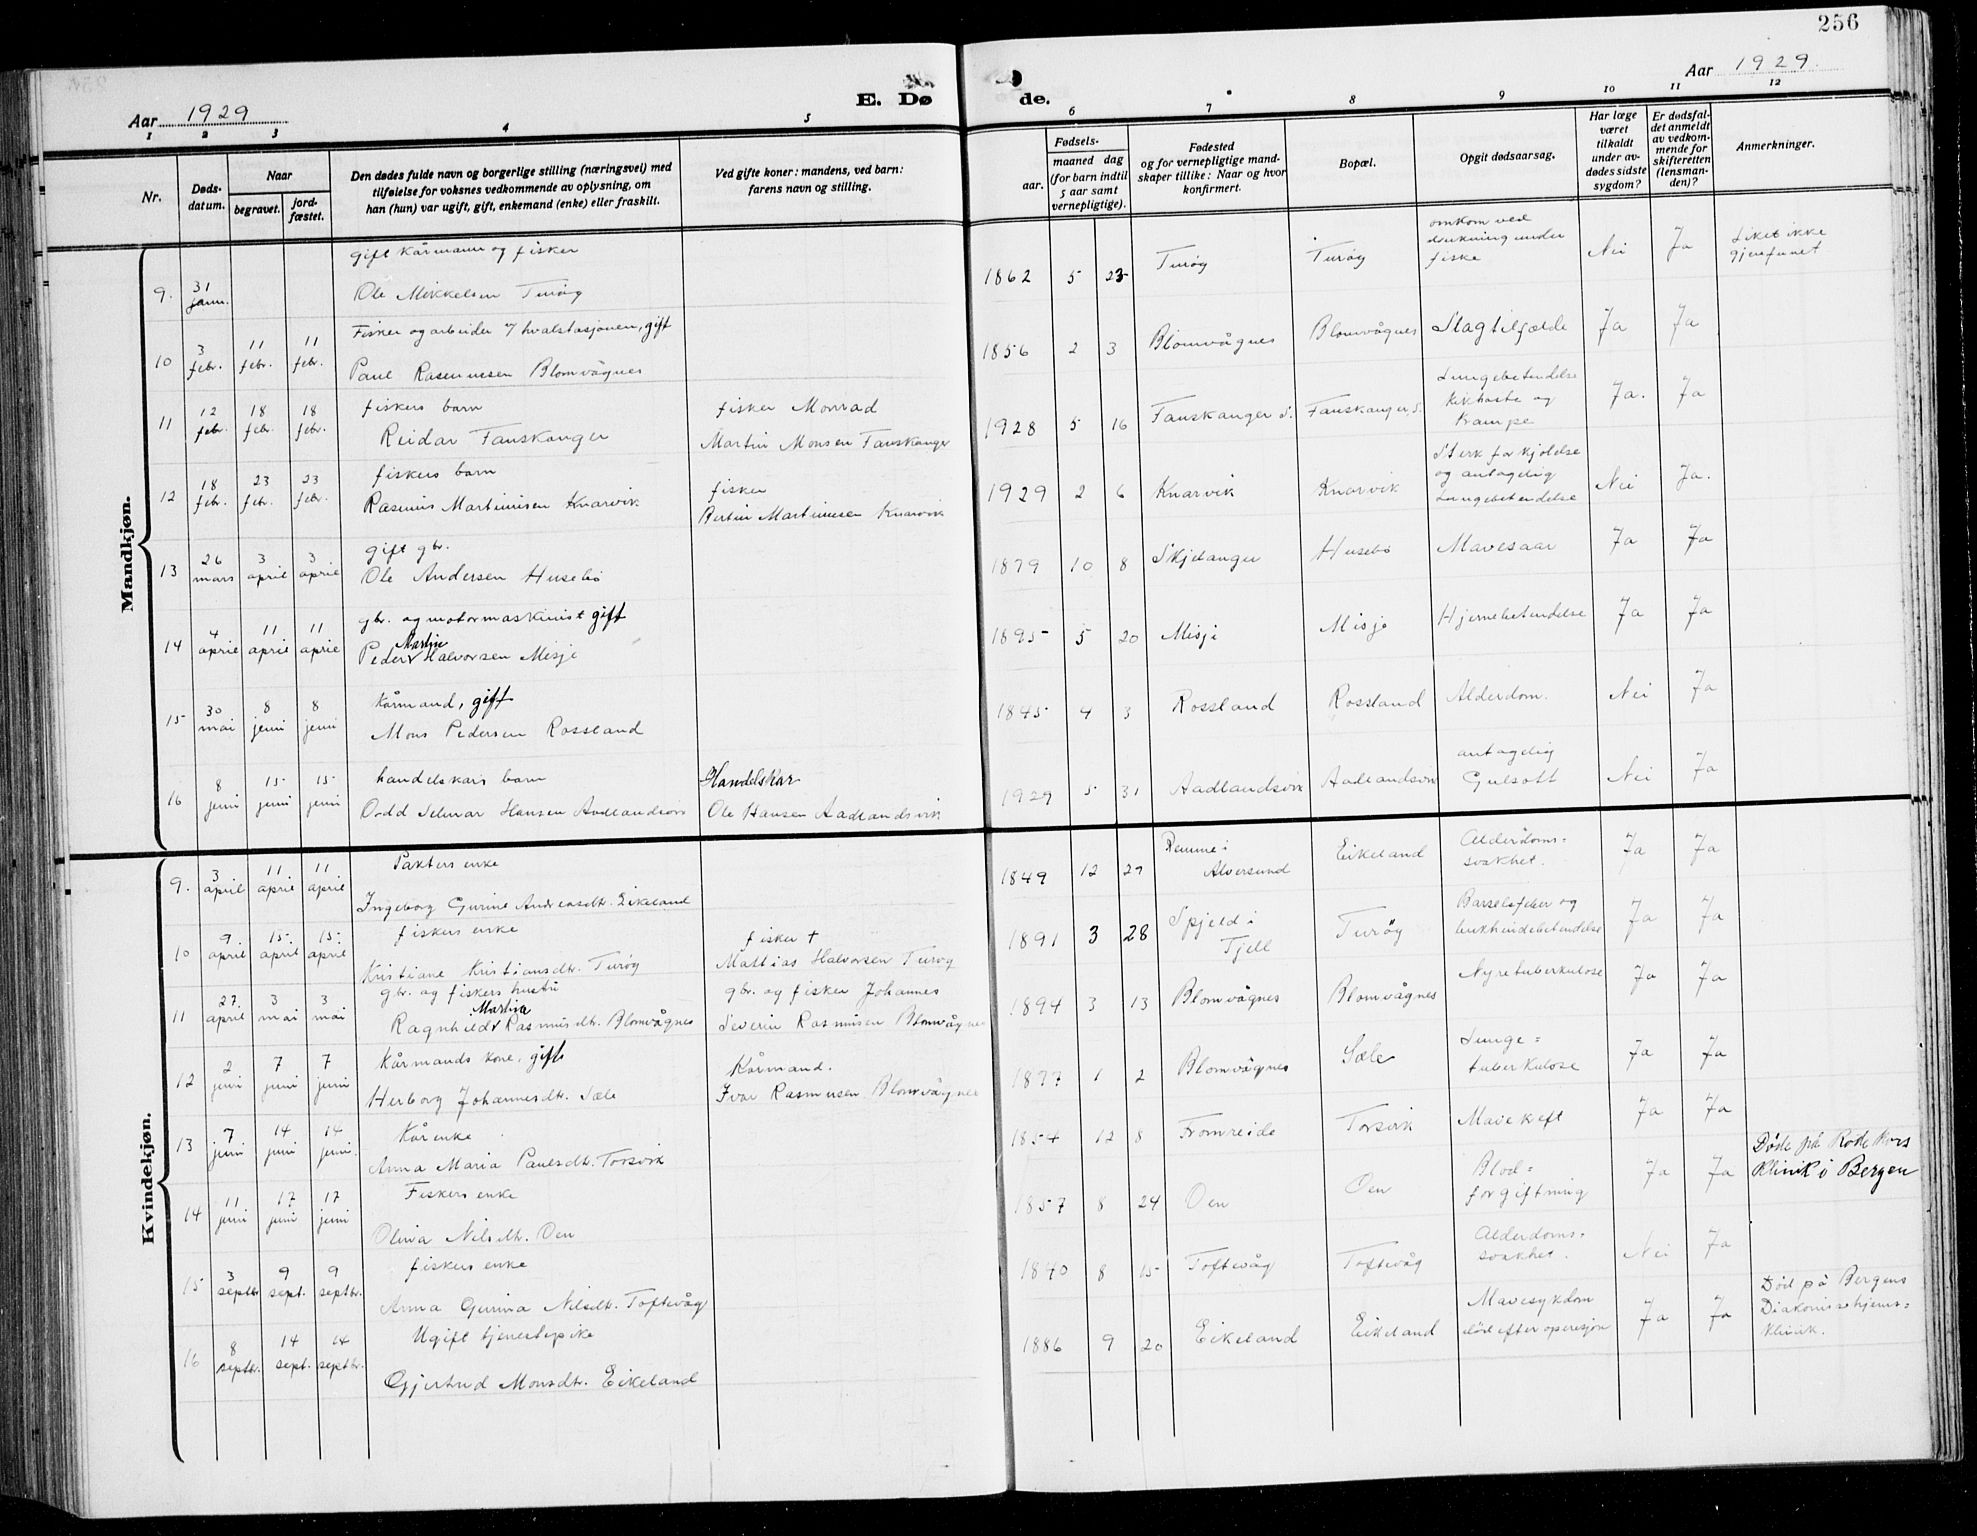 256
Aar 1929
E. Dø
de.
Aar 1929.
1 2 3 4 5 6 7 8 9 10 11 12
Nr.
Døds-
datum.
Naar
begravet.
jord-
fæstet.
Den dødes fulde navn og borgerlige stilling (næringsvei) med
tilføielse for voksnes vedkommende av oplysning, om
han (hun) var ugift, gift, enkemand (enke) eller fraskilt.
Ved gifte koner: mandens, ved barn:
farens navn og stilling.
Fødsels-
aar.
maaned dag
(for barn indtil
5 aar samt
vernepligtige).
Fødested
og for vernepligtige mand-
skaper tillike: Naar og hvor
konfirmert.
Bopæl.
Opgit dødsaarsag.
Har læge
været
tilkaldt
under av-
dødes sidste
sygdom?
Er dødsfal-
det anmeldt
av vedkom-
mende for
skifteretten
(lensman-
den)?
Anmerkninger.
Mandkjøn.
gift kårmann og fisker
9. 31 jann. Ole Mikkelsen Turøy
1862 5 23 Turøy Turøy omkom ved drukning under fiske Nei Ja Liket ikke gjenfunnet
Fisker og arbeider v/ hvalstasjonen, gift
10 3 febr. 11 febr. 11 febr. Paul Rasmussen Blomvågnes
1856 2 3 Blomvågnes Blomvågnes Slagtilfælde Ja Ja
fiskers barn fisker Monrad
11 12 febr. 18 febr. 18 febr. Reidar Fauskanger Martin Monsen Fauskanger
1928 5 16 Fauskanger S. Fauskanger S. Lungebetendelse kikhoste og krampe Ja. Ja
fiskers barn fisker
12 18 febr. 23 febr. 23 febr. Rasmus Martinusen Knarvik Bertin Martinusen Knarvik
1929 2 6 Knarvik Knarvik Sterk forkjølelse og antagelig Lungebetendelse Nei Ja.
gift gbr.
13 26 mars 3 april 3 april Ole Andersen Husebø
1879 10 8 Skjelanger Husebø Mavesaar Ja Ja
gbr. og motormaskinist gift
14 4 april 11 april 11 april Peder Martin Halvorsen Misje
1895 5 20 Misje Misje Hjernebetendelse Ja Ja
Kårmand, gift
15 30 mai 8 juni 8 juni Mons Pedersen Rossland
1845 4 3 Rossland Rossland Alderdom. Nei Ja
handelskars barn Handelskar
16 8 juni 15 juni 15 juni Odd Selmar Hansen Aadlandsvik Ole Hansen Aadlandsvik
1929 5 31 Aadlandsvik Aadlandsvik antagelig Gulsott Nei Ja
Kvindekjøn.
Pakters enke
9. 3 april 11 april 11 april Ingeborg Gurine Andreasdtr. Eikeland
1849 12 27 Remme i Alversund Eikeland Alderdoms= svakhet. Ja Ja
fiskers enke fisker +
10 9. april 15. april 15. april Kristiane Kristiansdtr. Turøy Mattias Halvorsen Turøy
1891 3 28 Spjeld i Fjell Turøy Barselfeber og bukhindebetendelse Ja Ja
gbr. og fiskers hustru gbr. og fisker Johannes
11 27. april 3 mai 3 mai Ragnhild Martina Rasmusdtr. Blomvågnes Severin Rasmusen Blomvågnes
1894 3 13 Blomvågnes Blomvågnes Nyretuberkulose Ja Ja
Kårmands kone, gift Kårmand.
12 2 juni 7 juni 7 juni Herborg Johannesdtr. Sæle Ivar Rasmusen Blomvågnes
1877 1 2 Blomvågnes Sæle Lunge= tuberkulose Ja Ja
Kårenke
13 7 juni 14 juni 14 juni. Anna Maria Paulsdtr. Torsvik
1854 12 8 Fromreide Torsvik Mavekreft Ja Ja
Fiskers enke
14 11 juni 17 juni 17 juni Olina Nilsdtr. Oen
1857 8 24 Oen Oen Blod= forgiftning Ja Ja Døde på Røde Kors Klinik i Bergen
fiskers enke
15 3 septbr 9 sept. 9 septbr. Anna Gurina Nilsdtr. Toftevåg
1840 8 15 Toftevåg Toftevåg Alderdoms= svakhet. Nei Ja
Ugift tjenestepike
16 8 septbr. 14 sept. 14 septbr. Gjertrud Monsdtr. Eikeland
1886 9 20 Eikeland Eikeland Mavesykdom død efter operasjon Ja Ja Død på Bergens Diakonissehjems= klinik.